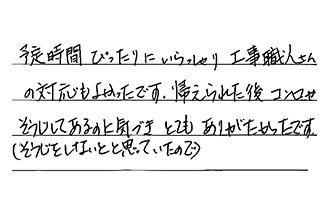 予定時間 ぴったりにいらっしゃり 工事職人さん
の対応もよかったです。帰えられた後 コンロが
そうじしてあるのに気づき とても ありがたかったです
(そうじをしないとと思っていたので)